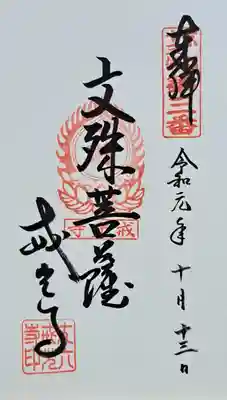 奉拝
令和元年十月十三日
文殊菩薩
戒光寺